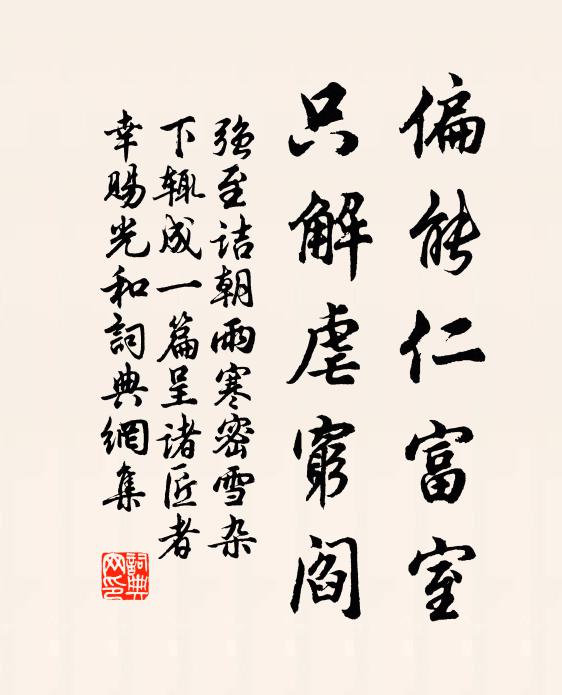 偏能仁富室
只解虐窮閻
強至詰朝雨寒密雪杂
下辄成一篇呈诸匠者
幸賜光和詞典網集
詞典
网印